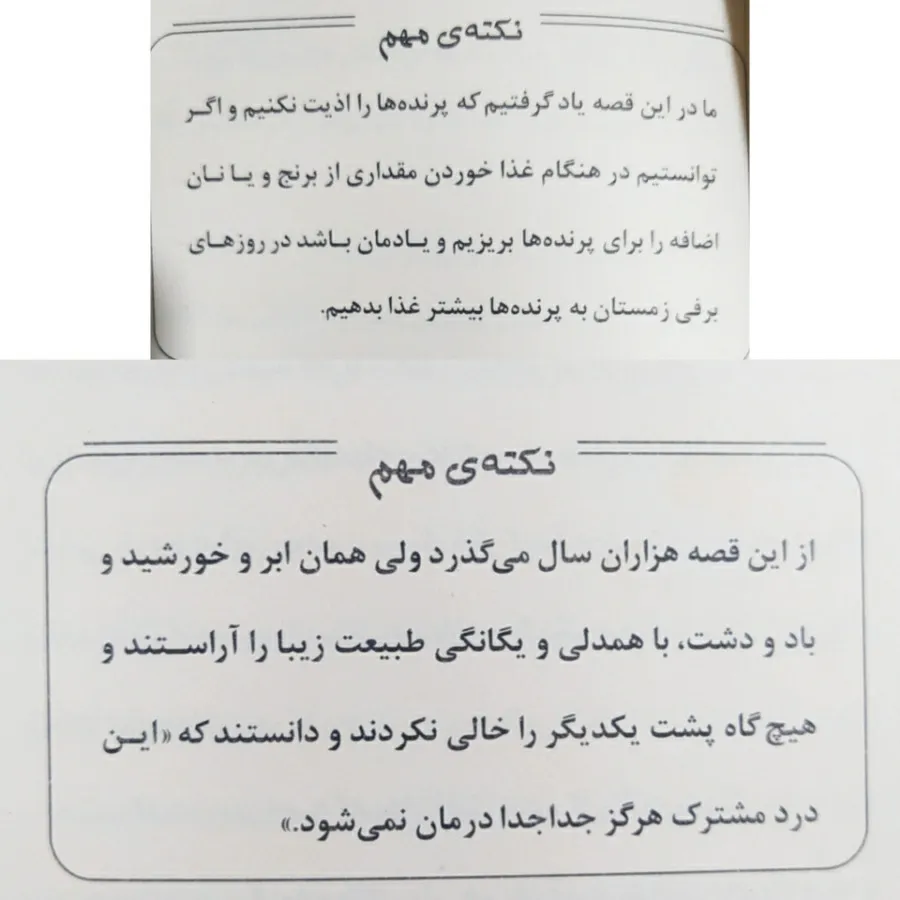 نکته‌ی مهم
ما در این قصه یاد گرفتیم که پرنده‌ها را اذیت نکنیم و اگر
توانستیم در هنگام غذا خوردن مقداری از برنج و یا نان
اضافه را برای پرنده‌ها بریزیم و یادمان باشد در روزهای
برفی زمستان به پرنده‌ها بیشتر غذا بدهیم.
نکته‌ی مهم
از این قصه هزاران سال می‌گذرد ولی همان ابر و خورشید و
باد و دشت، با همدلی و یگانگی طبیعت زیبا را آراستند و
هیچ گاه پشت یکدیگر را خالی نکردند و دانستند که «این
درد مشترک هرگز جداجدا درمان نمی‌شود.»